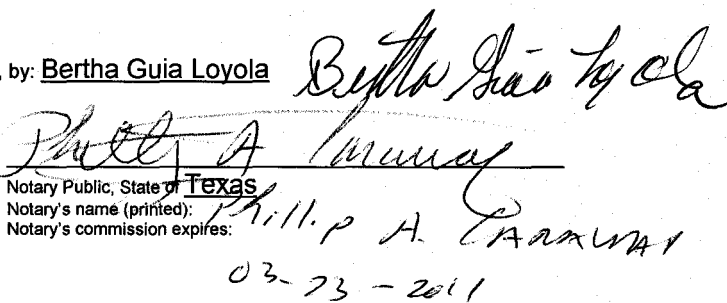 , by: Bertha Guia Loyola Bertha Guia Loyola
Phillip A Caraway
Notary Public, State of Texas
Notary's name (printed): Phillip A. CARAWAY
Notary's commission expires:
03-23-2011